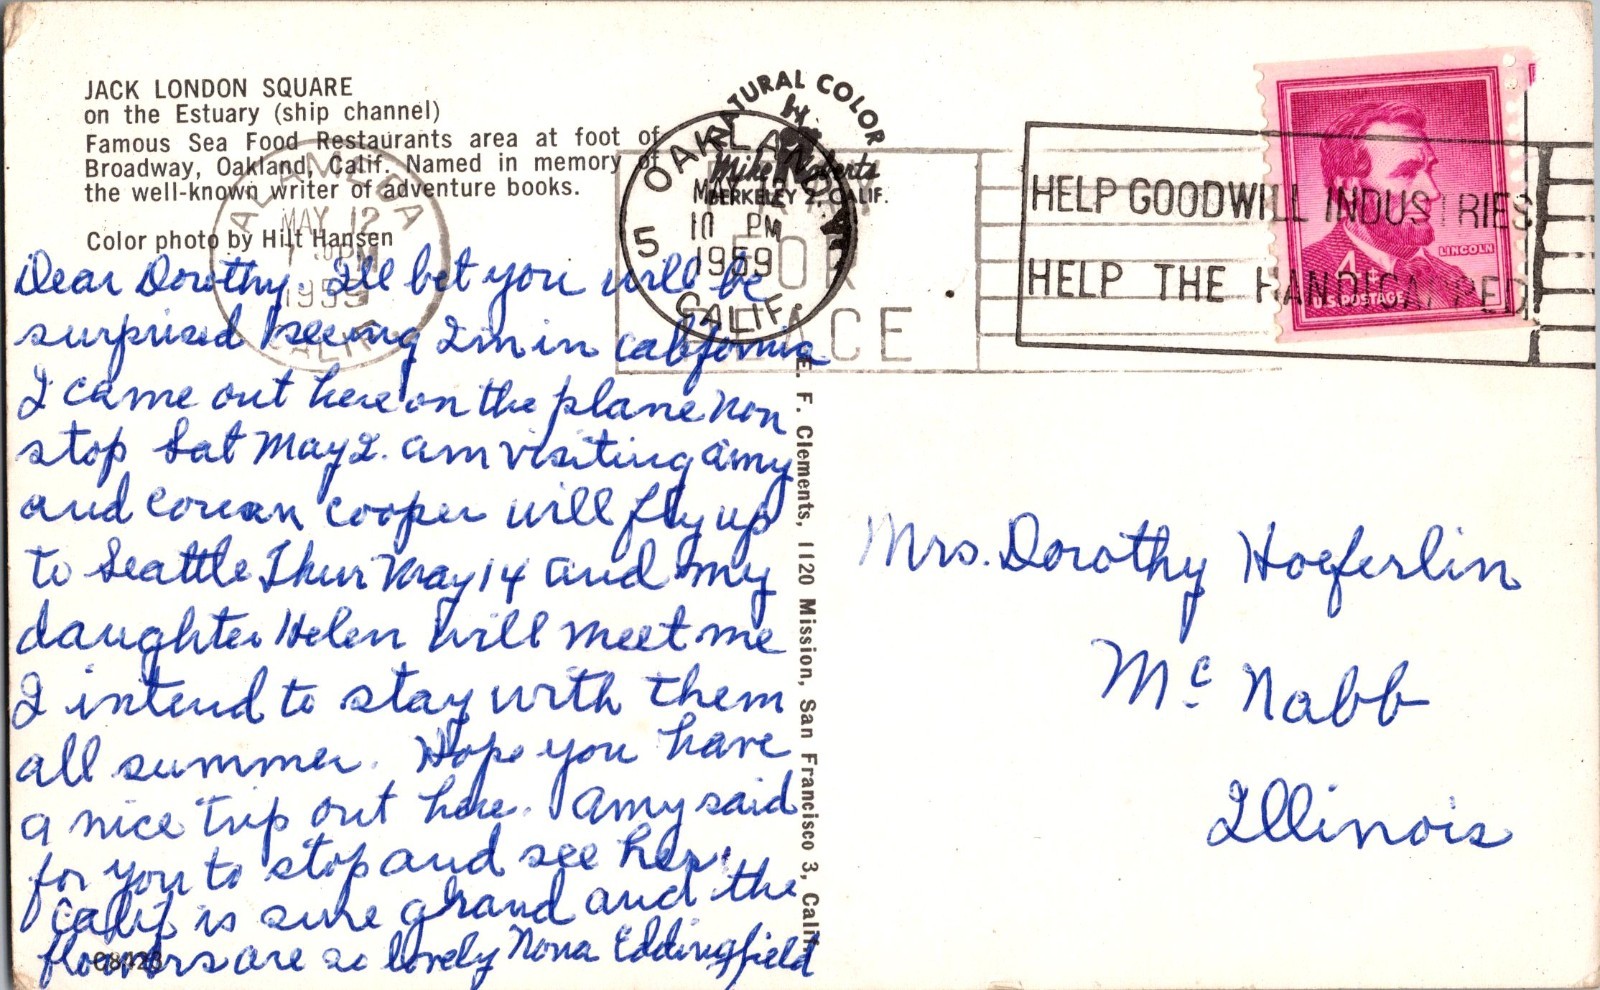 JACK LONDON SQUARE
on the Estuary (ship channel)
Famous Sea Food Restaurants area at foot of
Broadway, Oakland, Calif. Named in memory of
the well-known writer of adventure books.
Color photo by Hilt Hansen
NATURAL COLOR
by
Mike Roberts
BERKELEY 2, CALIF.
ALAMEDA
MAY 12
PM
1959
CALIF.
PRAY
FOR
PEACE
OAKLAND
5
10 PM
1959
CALIF.
HELP GOODWILL INDUSTRIES
HELP THE HANDICAPPED
LINCOLN
U.S. POSTAGE
Dear Dorothy. Ill bet you will be
surprised seeing Im in California
I came out here on the plane non
stop Sat May 2. am visiting Amy
and Cooper will fly up
to Seattle Thur May 14 and my
daughter Helen will meet me
I intend to stay with them
all summer. Hope you have
a nice trip out here. Amy said
for you to stop and see her.
Calif is sure grand and the
flowers are so lovely Nona Eddingfield
C8423
E. F. Clements, 1120 Mission, San Francisco 3, Calif.
Mrs. Dorothy Hoeferlin
Mc Nabb
Illinois